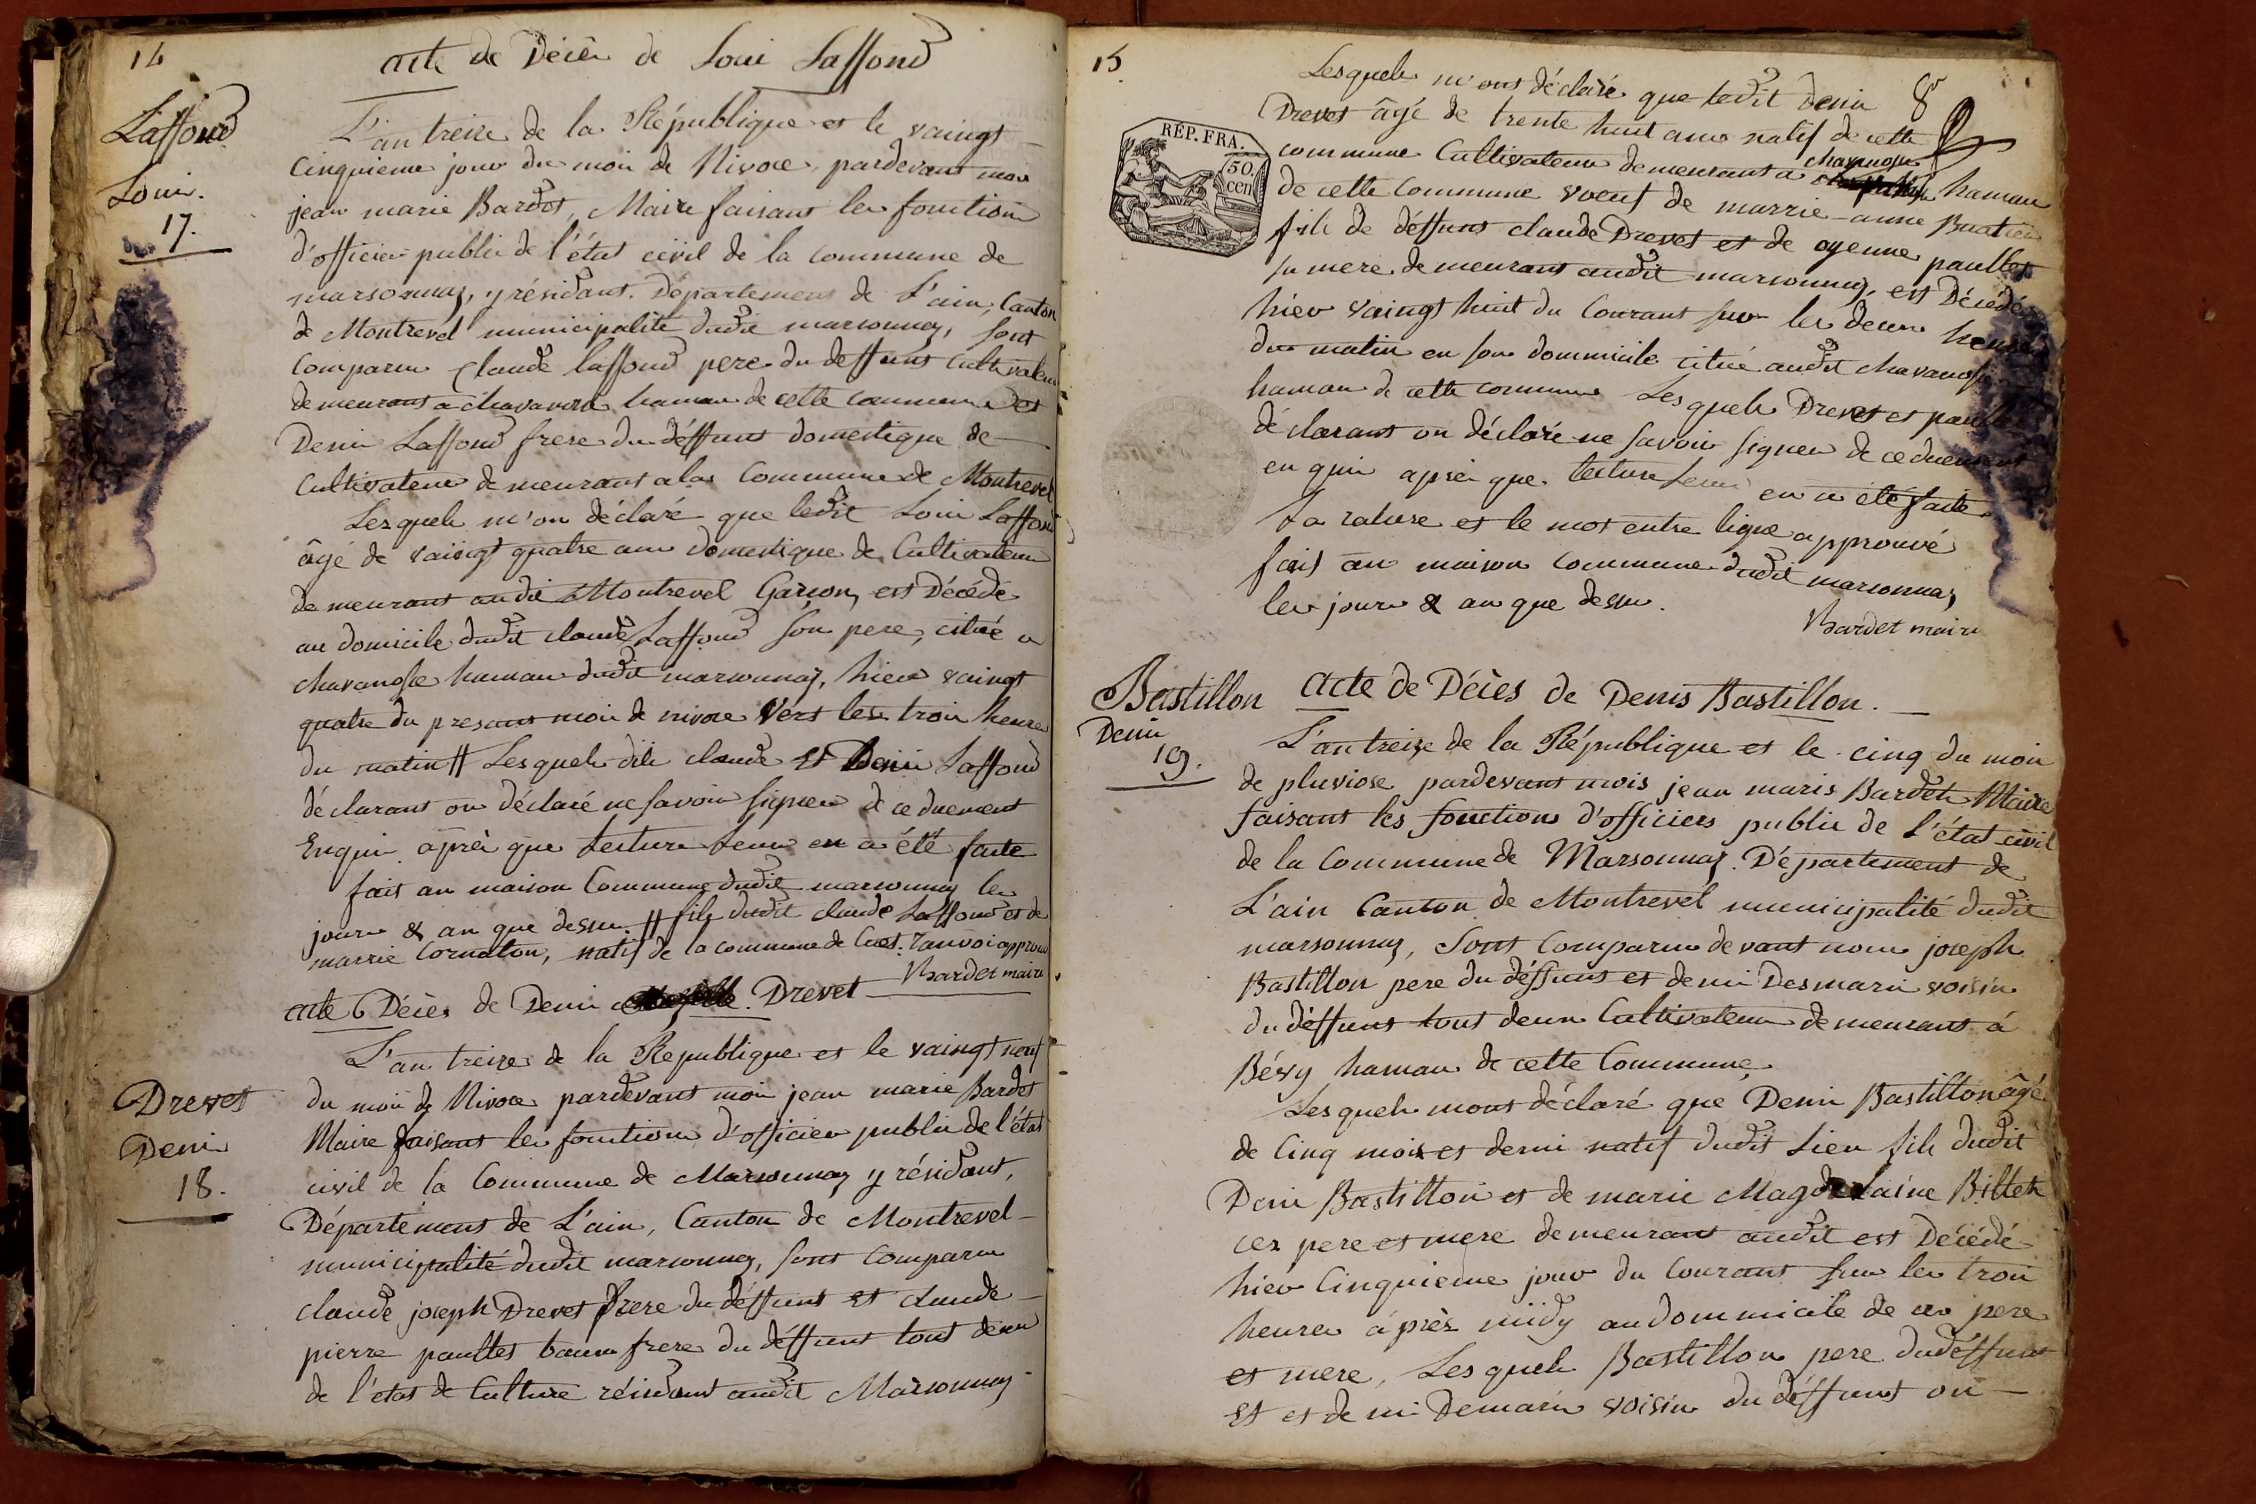 14
acte de Décès de Loui Laffond
Laffond
Loui.
17.
L'an treize de la République et le vaingt
cinquieme jour du moi de Nivose, pardevant moi
jean marie Bardet, Maire faisant les fonction
d'officier public de l'état civil de la commune de
marsonnay, y résidant. Département de L'ain, Canton
de Montrevel municipalité dudit marsonnay, sont
comparu Claude laffond pere du deffunt cultivateur
demeurant a chavanosse hamau de cette commune Et
Deni Laffond frere du déffunt domestique de
cultivateur demeurant a la Commune de Montrevel
Lesquels m'on déclaré que ledit Loui Laffond
âgé de vaingt quatre ans domestique de Cultivateur
demeurant audit Montrevel Garçon, est Décédé
au domicile dudit claude Laffond son pere, citué a
chavanosse hamau dudit marsonnay, hier vaingt
quatre du presant moi de nivose Vers les troi heure
du matin # Lesquels dits claude Et Deni Laffond
déclarant on déclaré ne savoir signer de ce duement
Enqui aprè que lecture leur en a été faite
fait au maison Commune dudit marsonnay les
jour & an que dessu. # fils dudit claude Laffond et de
marrie Cornaton, natif de la commune de Cuet. ranvoi approuvé
Bardet maire
acte Décès de Deni Drevet
Drevet
Deni
18.
L'an treize de la Republique et le vaingt neuf
du moi de Nivose pardevant moi jean marie Bardet
Maire faisant les fonction d'officier public de l'état
civil de la Commune de Marsonnay y résidant,
Département de L'ain, Canton de Montrevel
municipalité dudit marsonnay, sont comparu
claude joseph Drevet frere du déffunt Et claude
pierre paultet beau frere du déffunt tout deux
de l'etat de Culture résidant audit Marsonnay
15
8
RÉP. FRA.
50.
cen
Lesquels m'ont déclaré que ledit deni
Drevet âgé de trente huit ans natif de cette
commune Cultivateur demeurant a chavanosse hamau
de cette Commune voeuf de marrie-anne
fils de déffunt claude Drevet et de oyenne paultet
sa mere demeurant audit marsonnay, est Décédé
hier vaingt huit du Courant sur les deux heure
du matin en son dommicile citué audit chavanosse
hamau de cette commune Lesquels Drevet et paultet
déclarant on déclaré ne savoir signer de ce duement
enqui aprè que lecture leur en a été faite
La rature et le mot entre ligne approuvé
fait au maison commune dudit marsonnay
les jour & an que dessu.
Bardet maire
Bastillon
Deni
19.
Acte de Décès de Denis Bastillon.
L'an treize de la République et le cinq du moi
de pluviose pardevant mois jean maris Bardet Maire
faisant les fonctions d'officiers public de l'état civil
de la Commune de Marsonnay. Département de
L'ain Canton de Montrevel municipalité dudit
marsonnay, Sont Comparu devant nous joseph
Bastillon pere du déffunt et deni Desmaris voisin
du déffunt tout deux Cultivateur demeurant á
Bévy hamau de cette Commune
Lesquels mont déclaré que Deni Bastillon âgé
de Cinq mois et demi natif dudit Lieu fils dudit
Deni Bastillon et de marie Magdelaine Billet
ces pere et mere demeurant audit est Décédé
hier Cinquieme jour du Courant sur les troi
heures áprèz midy au dommicile de ces pere
et mere, Lesquels Bastillon pere du deffunt
Et et deni Demaris voisin du déffunt on